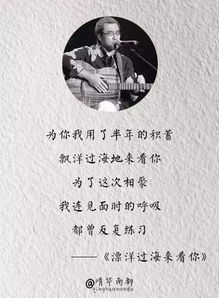 为你我用了半年的积蓄
飘洋过海地来看你
为了这次相聚
我连见面时的呼吸
都曾反复练习
——《漂洋过海来看你》
@清华南都
qinghuanandu